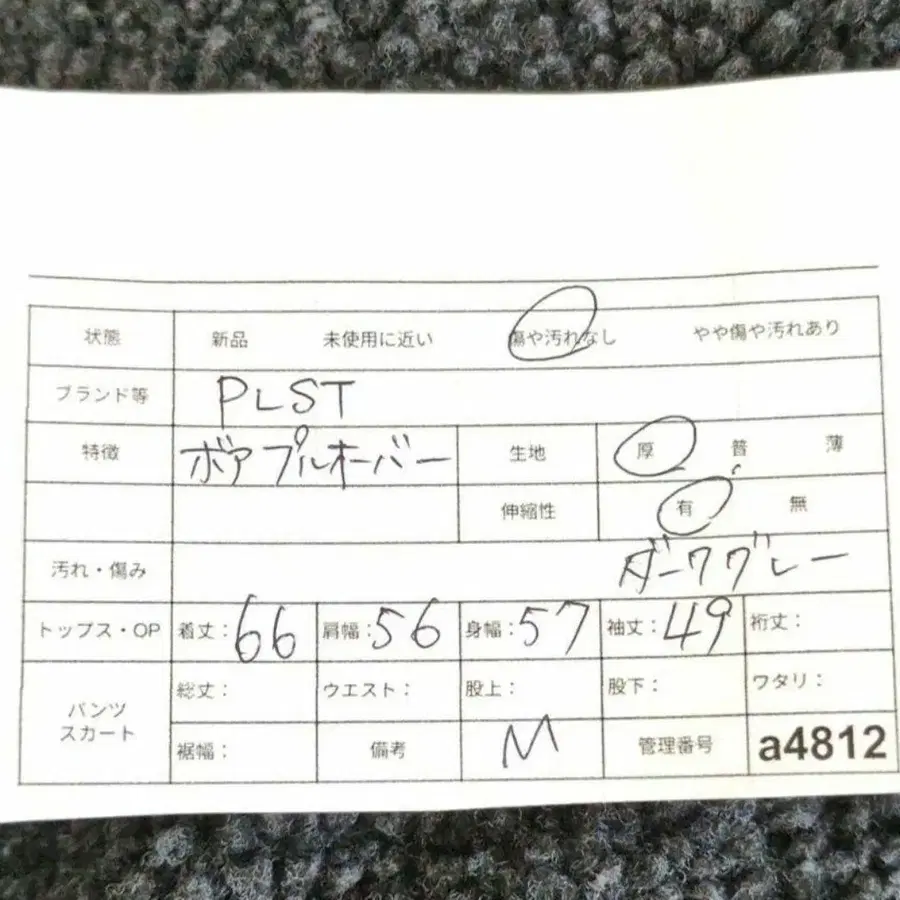 状態 新品 未使用に近い 傷や汚れなし やや傷や汚れあり
ブランド等 PLST
特徴 ボアプルオーバー 生地 厚 普 薄
伸縮性 有 無
汚れ・傷み ダークグレー
トップス・OP 着丈:66 肩幅:56 身幅:57 袖丈:49 裄丈:
パンツ スカート 総丈: ウエスト: 股上: 股下: ワタリ:
裾幅: 備考 M 管理番号 a4812